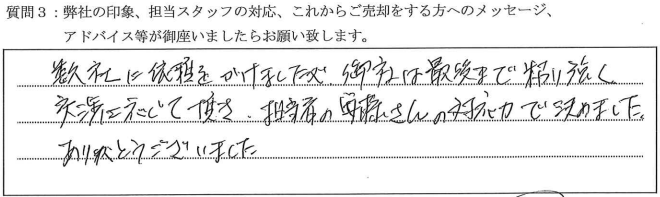 質問3：弊社の印象、担当スタッフの対応、これからご売却をする方へのメッセージ、
アドバイス等が御座いましたらお願い致します。
数社に依頼をかけましたが、御社は最後まで粘り強く
交渉に応じて頂き、担当者の さんの対応力で決めました。
ありがとうございました